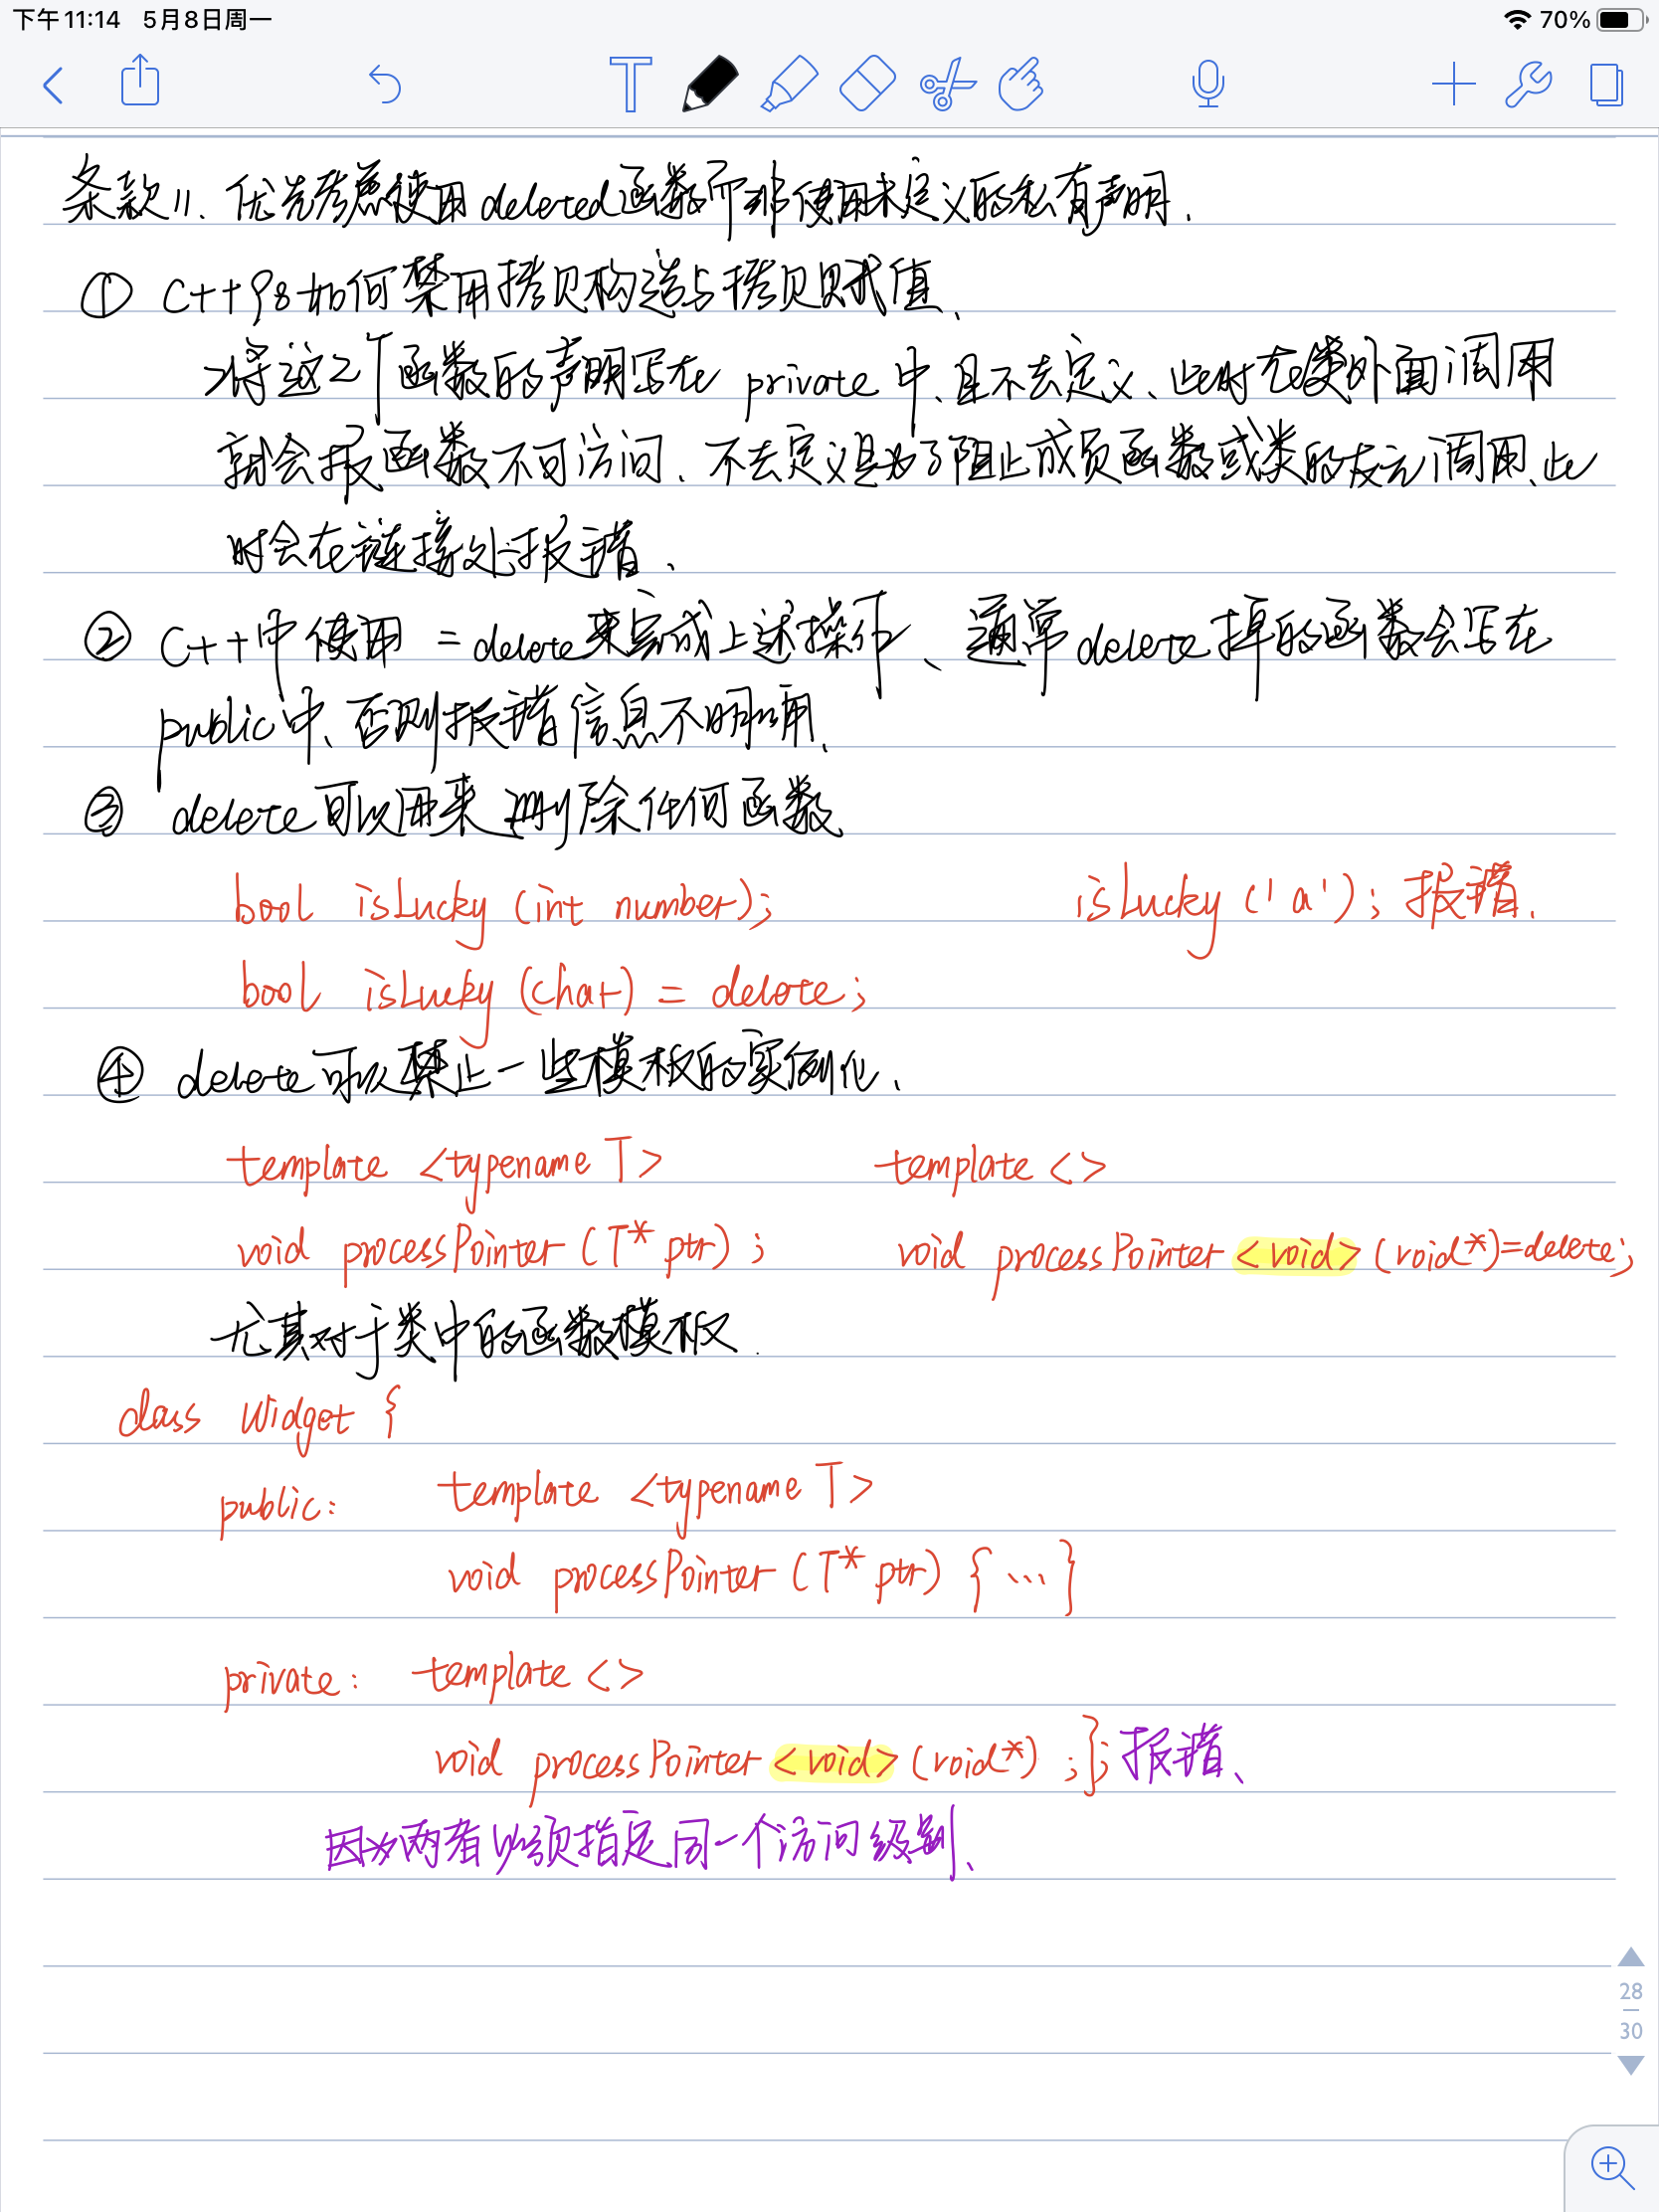 下午11:14 5月8日周一
70%
条款11. 优先考虑使用deleted函数而非使用未定义的私有声明.
① C++98如何禁用拷贝构造与拷贝赋值、
>将这2个函数的声明写在 private 中、且不去定义、此时在类外面调用
就会报函数不可访问、不去定义是为了阻止成员函数或类的友元调用、此
时会在链接处报错、
② C++中使用 =delete来完成上述操作、通常delete掉的函数会写在
public中、否则报错信息不明确、
③ delete可以用来删除任何函数、
bool isLucky (int number); isLucky ('a'); 报错.
bool isLucky (char) = delete;
④ delete可以禁止一些模板的实例化、
template <typename T> template <>
void processPointer (T* ptr) ; void processPointer <void> (void*)=delete;
尤其对于类中的函数模板.
class Widget {
public: template <typename T>
void processPointer (T* ptr) { ... }
private: template <>
void processPointer <void> (void*) ; }; 报错、
因为两者必须指定同一个访问级别、
28
30